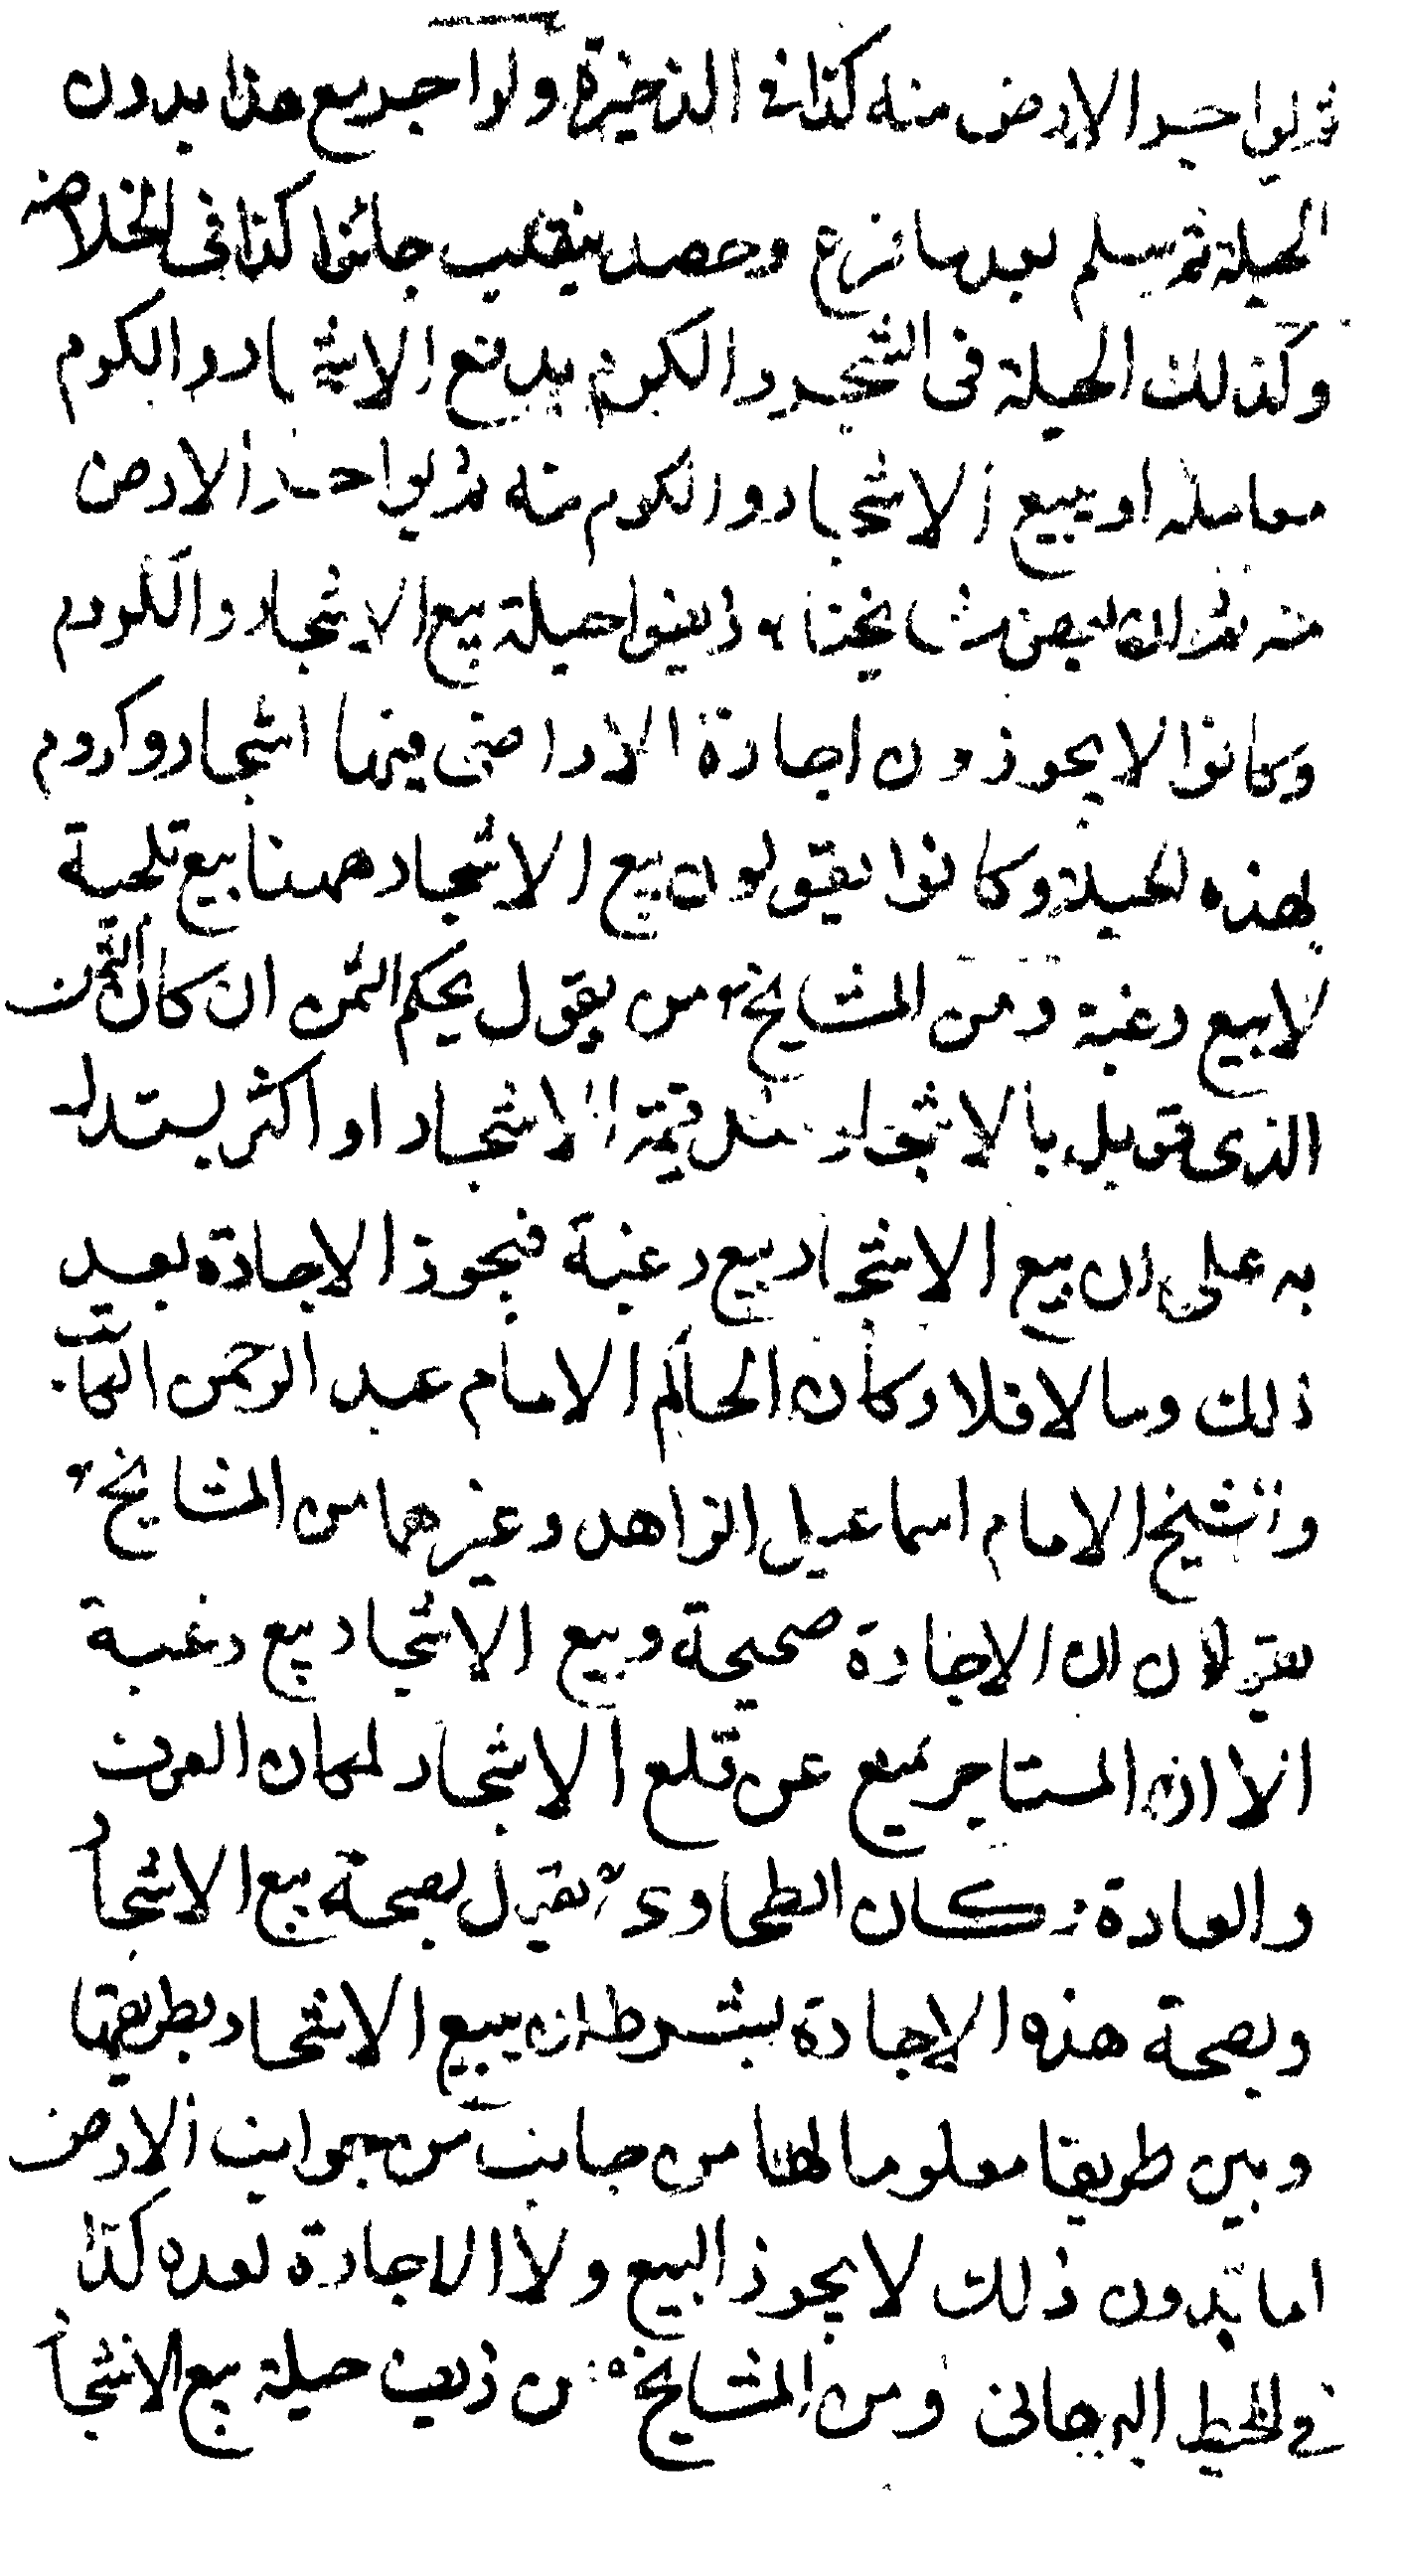 ثم يواجر الارض منه كذا فى الذخيرة ولو اجر مع هذا بدون
الحيلة ثم يسلم بعد ما فرغ وحصد ينقلب جائزا كذا فى الخلاصة
وكذلك الحيلة فى الشجر والكرم يدفع الاشجار والكروم
معاملة او يبيع الاشجار والكروم منه ثم يواجر الارض
منه ثم ان بعض مشايخنا رح زيفوا حيلة بيع الاشجار والكروم
وكانوا لا يجوزون اجارة الاراضى فيها اشجار وكروم
بهذه الحيلة وكانوا يقولون بيع الاشجار ههنا بيع تلجية
لا بيع رغبة ومن المشايخ رح من يقول يحكم الثمن ان كان الثمن
الذى قوبل بالاشجار مثل قيمة الاشجار او اكثر يستدل
به على ان بيع الاشجار بيع رغبة فيجوز الاجارة بعد
ذلك وما لا فلا وكان الحاكم الامام عبد الرحمن الكاتب
والشيخ الامام اسماعيل الزاهد وغيرهما من المشايخ رح
يقولان ان الاجارة صحيحة وبيع الاشجار بيع رغبة
الا ان المستاجر يمنع عن قلع الاشجار لمكان العرف
والعادة وكان الطحاوى رح يقول بصحة بيع الاشجار
وبصحة هذه الاجارة بشرط ان يبيع الاشجار بطريقها
وبين طريقا معلوما لها من جانب من جوانب الارض
اما بدون ذلك لا يجوز البيع ولا الاجارة بعده كذا
فى المحيط البرهانى ومن المشايخ رح من زيف حيلة بيع الاشجار